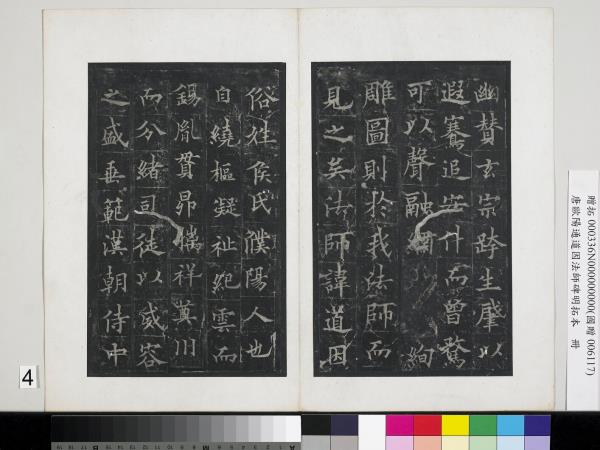 幽贊玄宗跨生肇以
遐騫追安什而曾騖
可以聲融綱絢
雕圖則於我法師而
見之矣法師諱道因
俗姓侯氏濮陽人也
自繞樞凝祉紀雲而
錫胤貫昴摛祥奠川
而分緒司徒以威容
之盛垂範漢朝侍中
贈拓 000336N000000000(國贈 006117)
唐歐陽通道因法師碑明拓本 冊
4